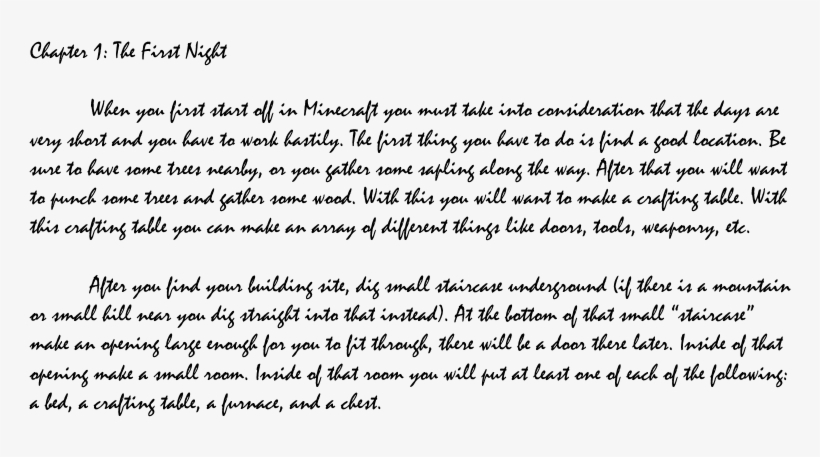 Chapter 1: The First Night
When you first start off in Minecraft you must take into consideration that the days are
very short and you have to work hastily. The first thing you have to do is find a good location. Be
sure to have some trees nearby, or you gather some sapling along the way. After that you will want
to punch some trees and gather some wood. With this you will want to make a crafting table. With
this crafting table you can make an array of different things like doors, tools, weaponry, etc.
After you find your building site, dig small staircase underground (if there is a mountain
or small hill near you dig straight into that instead). At the bottom of that small “staircase”
make an opening large enough for you to fit through, there will be a door there later. Inside of that
opening make a small room. Inside of that room you will put at least one of each of the following:
a bed, a crafting table, a furnace, and a chest.